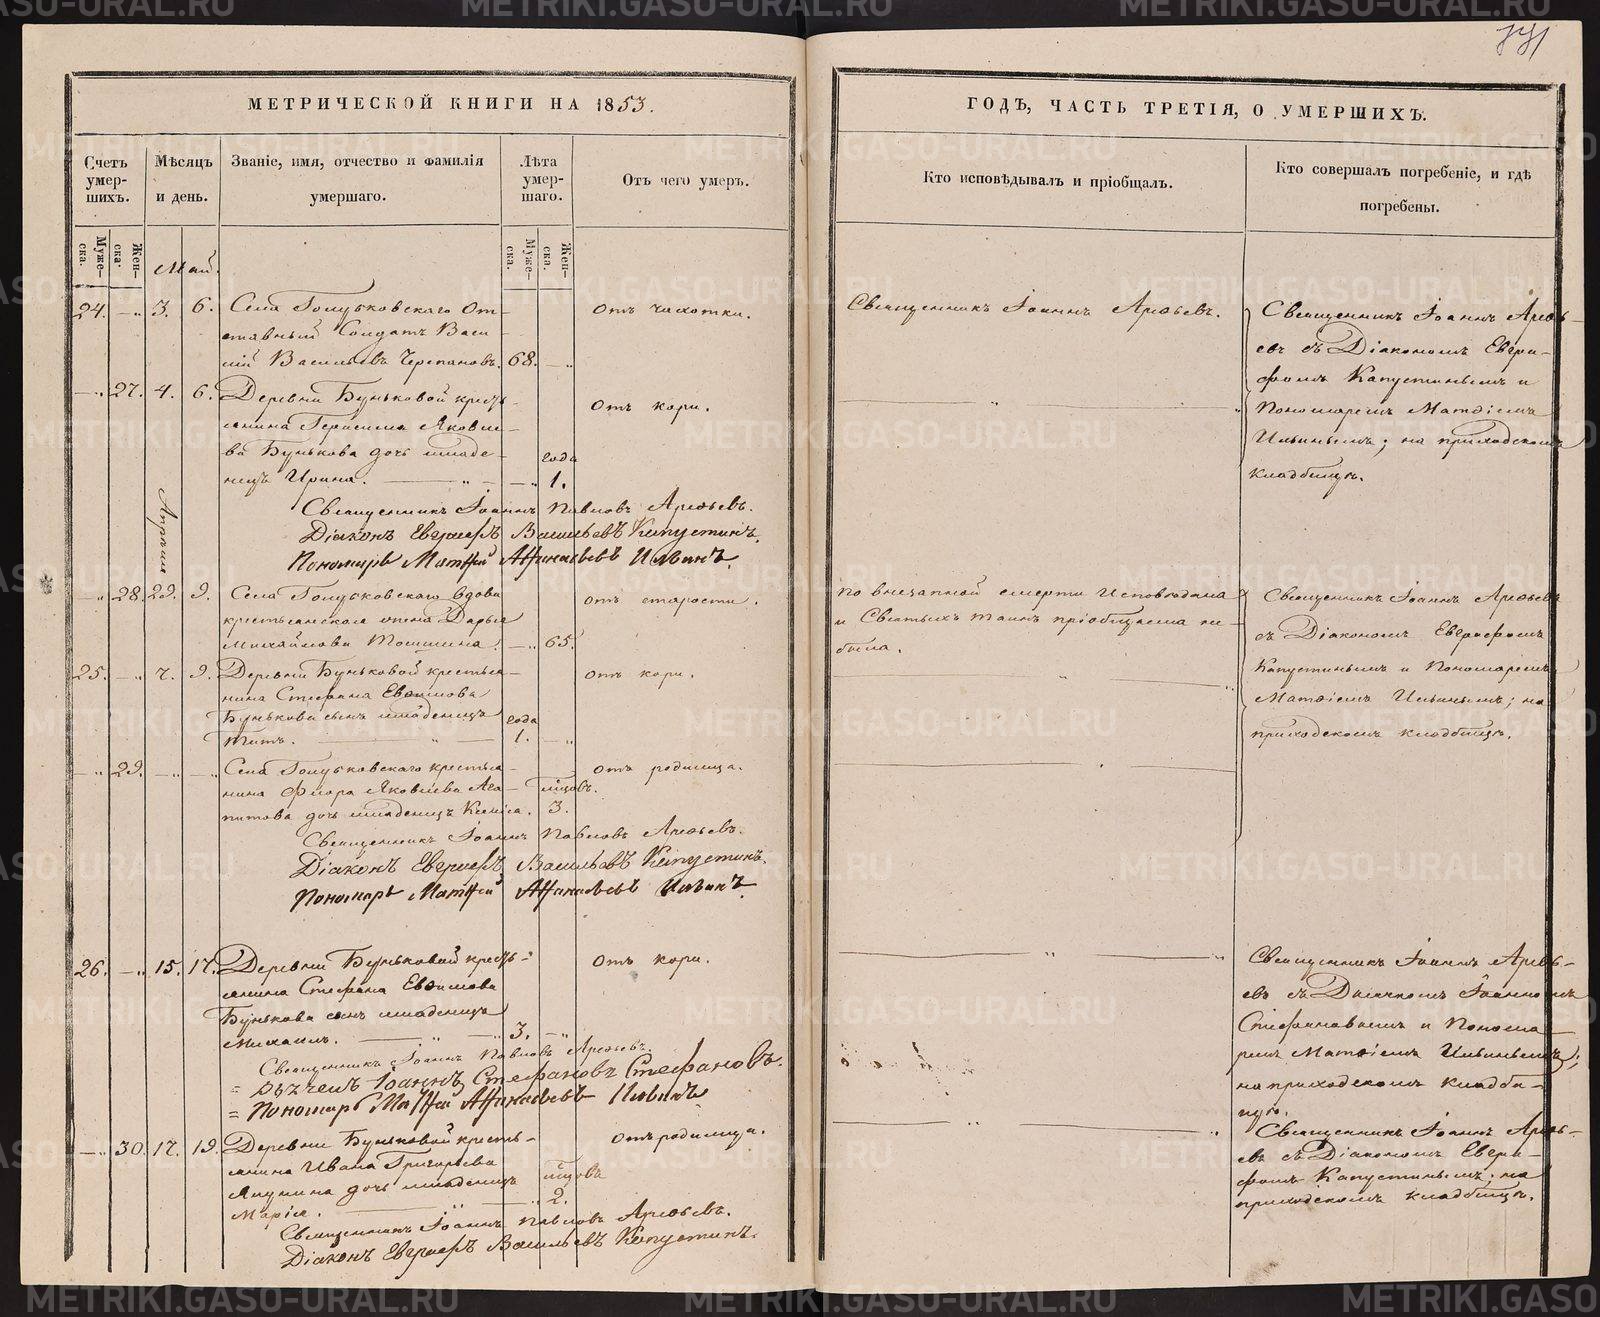 МЕТРИЧЕСКОЙ КНИГИ НА 1853.
Счетъ умер-шихъ.
Мѣсяцъ и день.
Званіе, имя, отчество и фамилія
умершаго.
Лѣта умер-шаго.
Отъ чего умеръ.
Муже-ска.
Жен-ска.
Муже-ска.
Жен-ска.
Май.
24. —„ 3. 6. Села Голубковскаго От-
ставный Солдатъ Васи-
лій Васильевъ Черепановъ. 68. —„
Отъ чахотки.
—„ 27. 4. 6. Деревни Буньковой кресть-
янина Герасима Яковле-
ва Бунькова дочь младе-
нецъ Ирина. —„— —„ года 1.
Отъ кори.
Священникъ Іоаннъ Павловъ Арефьевъ.
Діаконъ Евграфъ Васильевъ Капустинъ.
Пономарь Матѳій Аѳанасьевъ Ильинъ.
Апрѣля
—„ 28. 29. 9. Села Голубковскаго вдова
крестьянская жена Дарья
Михайлова Тошина. —„ 65.
отъ старости.
25. —„ 7. 9. Деревни Буньковой крестья-
нина Стефана Евѳимова
Бунькова сынъ младенецъ
Титъ. —„— года 1. —„
отъ кори.
—„ 29. —„ —„ Села Голубковскаго крестья-
нина Флора Яковлева Ага-
питова дочь младенецъ
мѣсяцовъ. 3.
отъ родимца.
Священникъ Іоаннъ Павловъ Арефьевъ.
Діаконъ Евграфъ Васильевъ Капустинъ.
Пономарь Матѳій Аѳанасьевъ Ильинъ.
26. —„ 15. 17. Деревни Буньковой кресть-
янина Стефана Евѳимова
Бунькова сынъ младенецъ
Михаилъ. —„— 3. —„
Отъ кори.
Священникъ Іоаннъ Павловъ Арефьевъ.
= Дьячекъ Іоаннъ Стефановъ Стефановъ.
= Пономарь Матѳій Аѳанасьевъ Ильинъ
—„ 30. 17. 19. Деревни Буньковой кресть-
янина Ивана Григорьева
Япунина дочь младенецъ
Марія. —„— —„ 2.
Отъ родимца.
Священникъ Іоаннъ Павловъ Арефьевъ.
Діаконъ Евграфъ Васильевъ Капустинъ.
ГОДЪ, ЧАСТЬ ТРЕТІЯ, О УМЕРШИХЪ.
Кто исповѣдывалъ и пріобщалъ.
Кто совершалъ погребеніе, и гдѣ
погребены.
Священникъ Іоаннъ Арефьевъ.
Священникъ Іоаннъ Арефь-
евъ съ Діакономъ Евгра-
фомъ Капустинымъ и
Пономаремъ Матѳіемъ
Ильинымъ; на приходскомъ
кладбищѣ.
По внезапной смерти исповѣдана
и Святыхъ Таинъ пріобщена не-
была.
Священникъ Іоаннъ Арефьевъ
съ Діакономъ Евграфомъ
Капустинымъ и Пономаремъ
Матѳіемъ Ильинымъ; на
приходскомъ кладбищѣ.
Священникъ Іоаннъ Арефь-
евъ съ Дьячкомъ Іоанномъ
Стефановымъ и Понома-
ремъ Матѳіемъ Ильинымъ;
на приходскомъ кладби-
щѣ.
Священникъ Іоаннъ Арефь-
евъ съ Діакономъ Евгра-
фомъ Капустинымъ; на
приходскомъ кладбищѣ.
METRIKI.GASO-URAL.RU